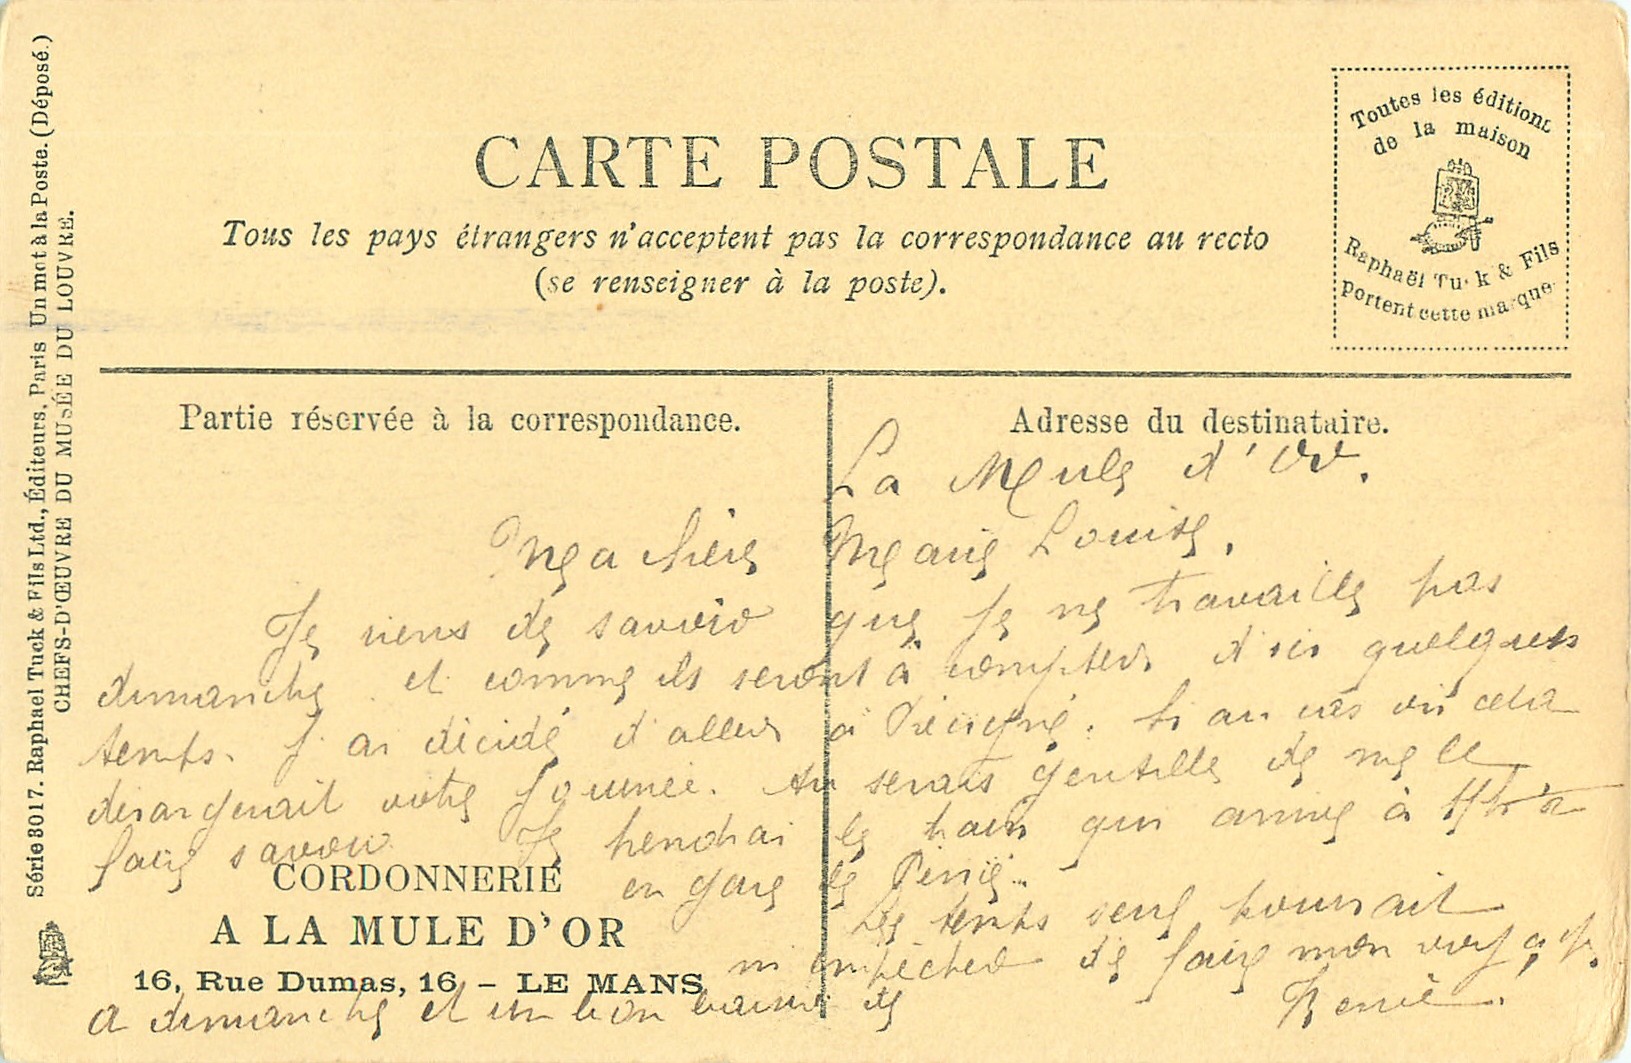 CARTE POSTALE
Tous les pays étrangers n'acceptent pas la correspondance au recto
(se renseigner à la poste).
Toutes les éditions
de la maison
Raphaël Tuck & Fils
portent cette marque
Série 8017. Raphael Tuck & Fils Ltd., Éditeurs, Paris Un mot à la Poste. (Déposé.)
CHEFS-D'ŒUVRE DU MUSÉE DU LOUVRE.
Partie réservée à la correspondance.
Adresse du destinataire.
La Mule d'Or.
Ma chère Marie Louise,
Je viens de savoir que je ne travaille pas
dimanche et comme ils seront à compter d'ici quelques
temps. j'ai décidé d'aller à Précigné. Si au cas où cela
dérangerait votre journée. tu serais gentille de me le
faire savoir. Je prendrai le train qui arrive à
en gare de
Le temps seul pourrait
m'empêcher de faire mon
a dimanche et un bon baiser de
Renée.
CORDONNERIE
A LA MULE D'OR
16, Rue Dumas, 16 - LE MANS